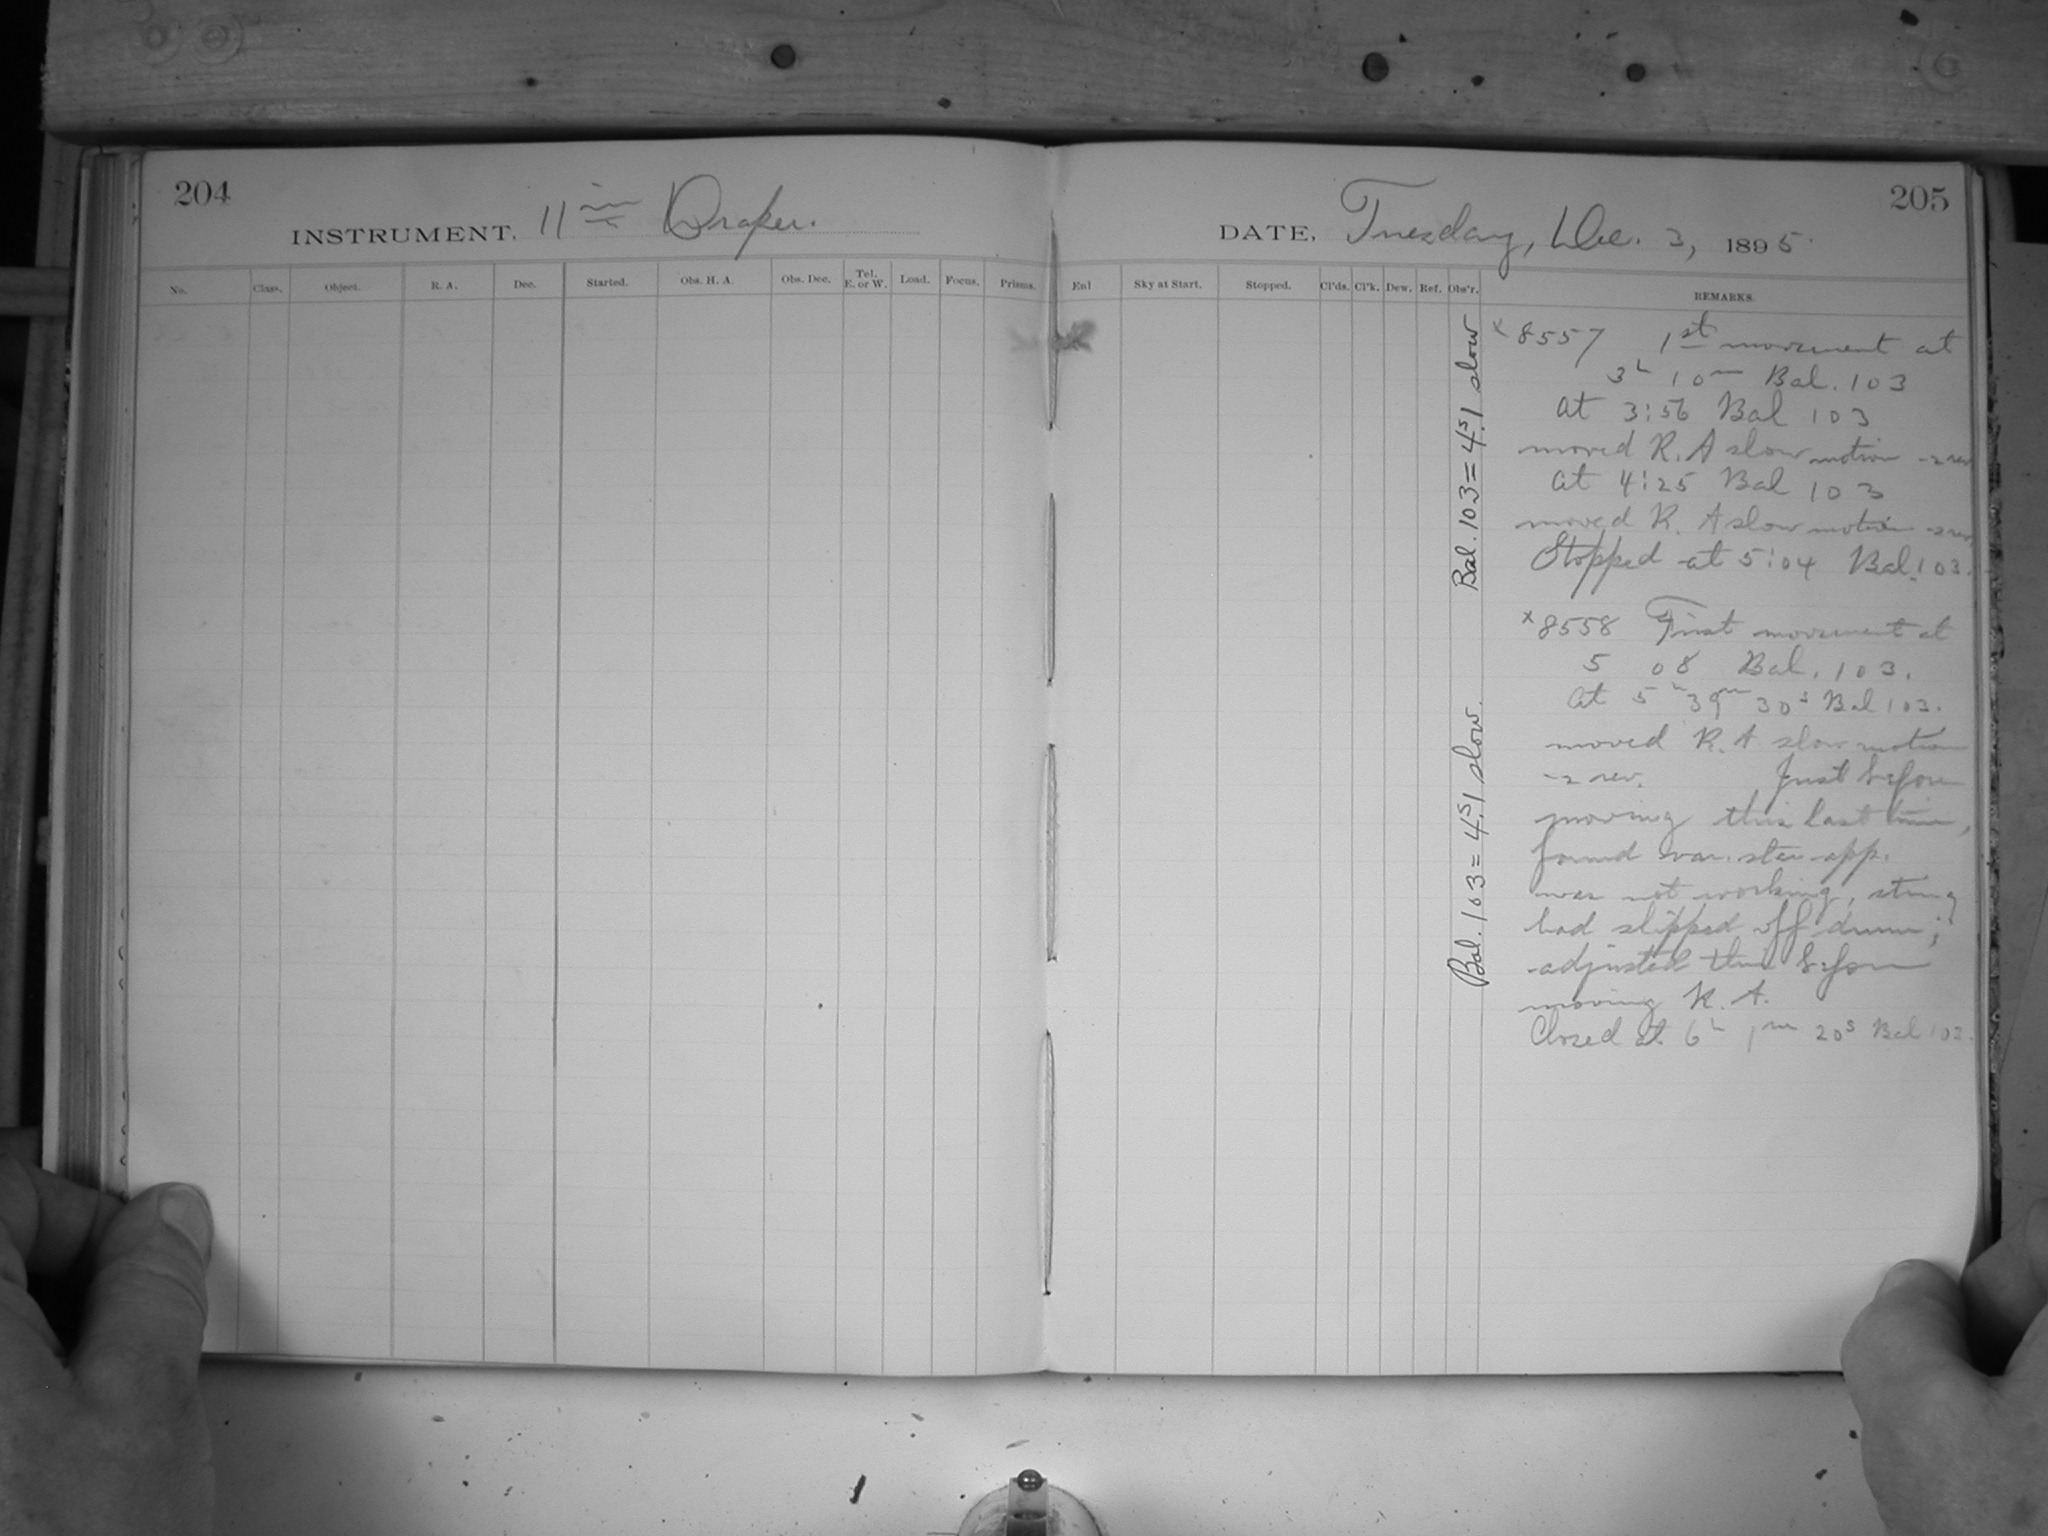 204
INSTRUMENT, 11 in Draper.
No. Class. Object. R. A. Dec. Started. Obs. H. A. Obs. Dec. Tel. E. or W. Load. Focus. Prisms.
205
DATE, Tuesday, Dec. 3, 1895.
Enl Sky at Start. Stopped. Cl'ds. Cl'k. Dew. Ref. Obs'r. REMARKS.
Bal. 103 = 4s.1 slow
x 8557 1st movement at
3h 10m Bal. 103
at 3:56 Bal 103
moved R. A slow motion -2 rev
at 4:25 Bal 103
moved R. A slow motion -2 rev.
Stopped at 5:04 Bal. 103.
Bal. 103 = 4s.1 slow.
x 8558 First movement at
5 08 Bal. 103.
At 5h 39m 30s Bal 103.
moved R. A slow motion
-2 rev. Just before
moving this last time,
found var. star app.
was not working, string
had slipped off drum;
adjusted this before
moving R. A.
Closed at 6h 1m 20s Bal 103.